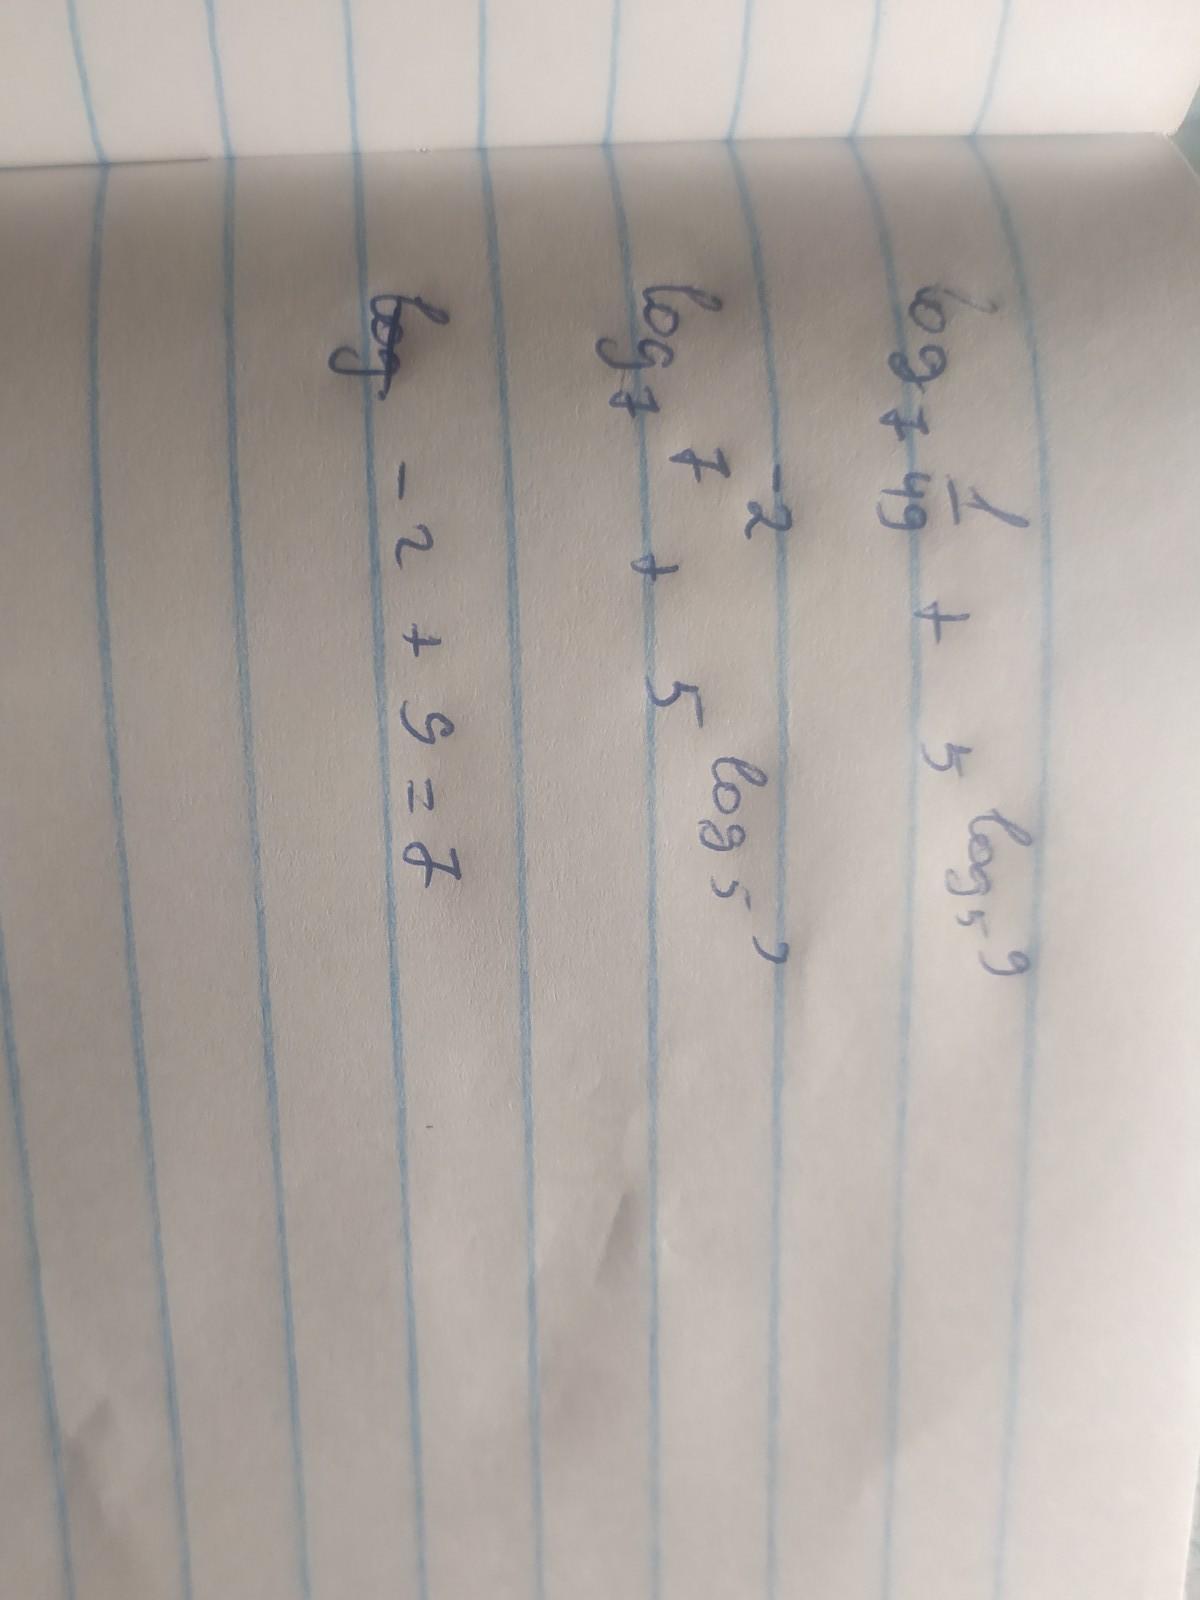 log₇ 1/49 + 5^log₅9
log₇ 7⁻² + 5^log₅9
-2 + 9 = 7